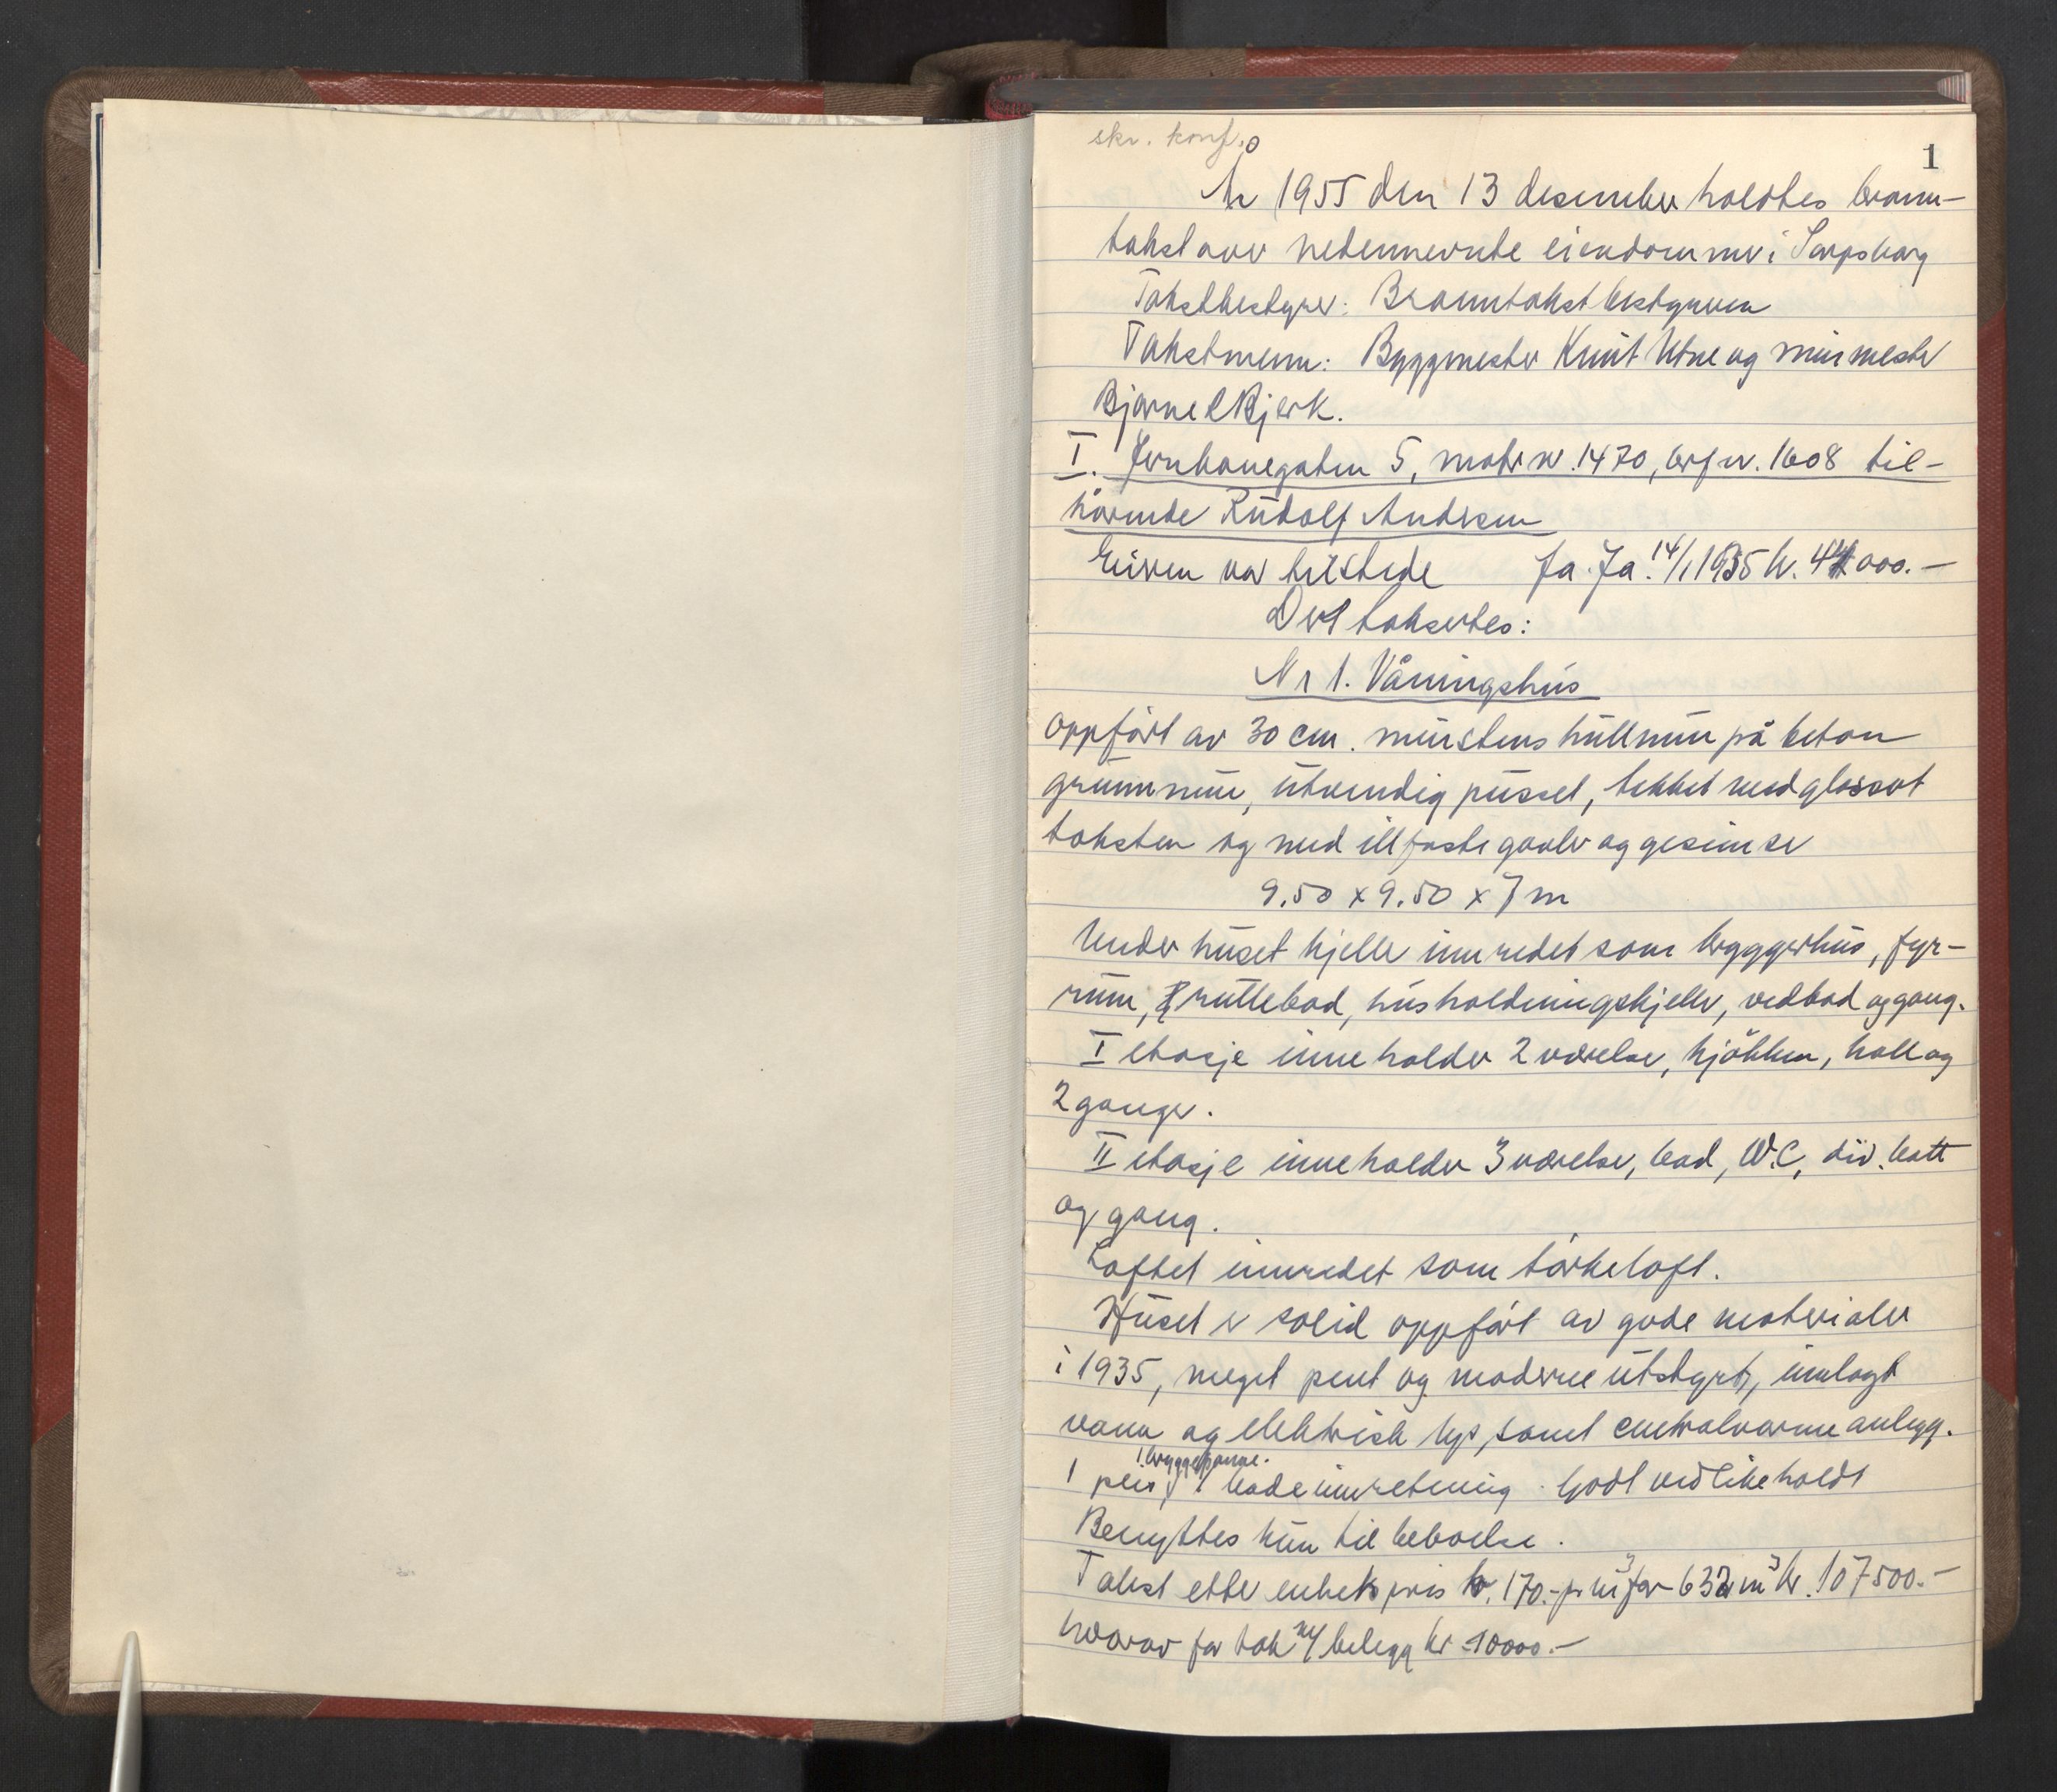 skr. konf.
1
År 1955 den 13 desember holdtes brann-
takst over nedennevnte eiendommer i Sarpsborg
Takstbestyrer: Branntakstbestyreren
Takstmenn: Byggmester Knut Utne og murmester
Bjarne Bjerk.
I. Jernbanegaten 5, matr nr. 1470, brf nr. 1608 til-
hørende Rudolf Andresen
Eieren var tilstede Fa. Ja. 14/1 1935 kr. 44000.-
Det taksertes:
Nr 1. Våningshus
oppført av 30 cm. murstens hullmur på beton
grunnmur, utvendig pusset, tekket med glassert
taksten og med illfaste gavler og gesimser
9.50 x 9.50 x 7 m
Under huset kjeller innredet som bryggerhus, fyr-
rum, rullebod, husholdningskjeller, vedbod og gang.
I etasje inneholder 2 værelser, kjøkken, hall og
2 ganger.
II etasje inneholder 3 værelser, bad, W.C, div. kott
og gang.
Loftet innredet som tørkeloft.
Huset er solid oppført av gode materialer
i 1935, meget pent og moderne utstyrt, innlagt
vann og elektrisk lys, samt centralvarmeanlegg.
1 bryggepanne.
1 peis, 1 badeinnretning. Godt vedlikeholdt
Benyttes kun til beboelse.
Takst etter enhetspris kr. 170.- pr m³ for 632 m³ kr. 107500.-
hvorav for tak m/ belegg kr 10000.-